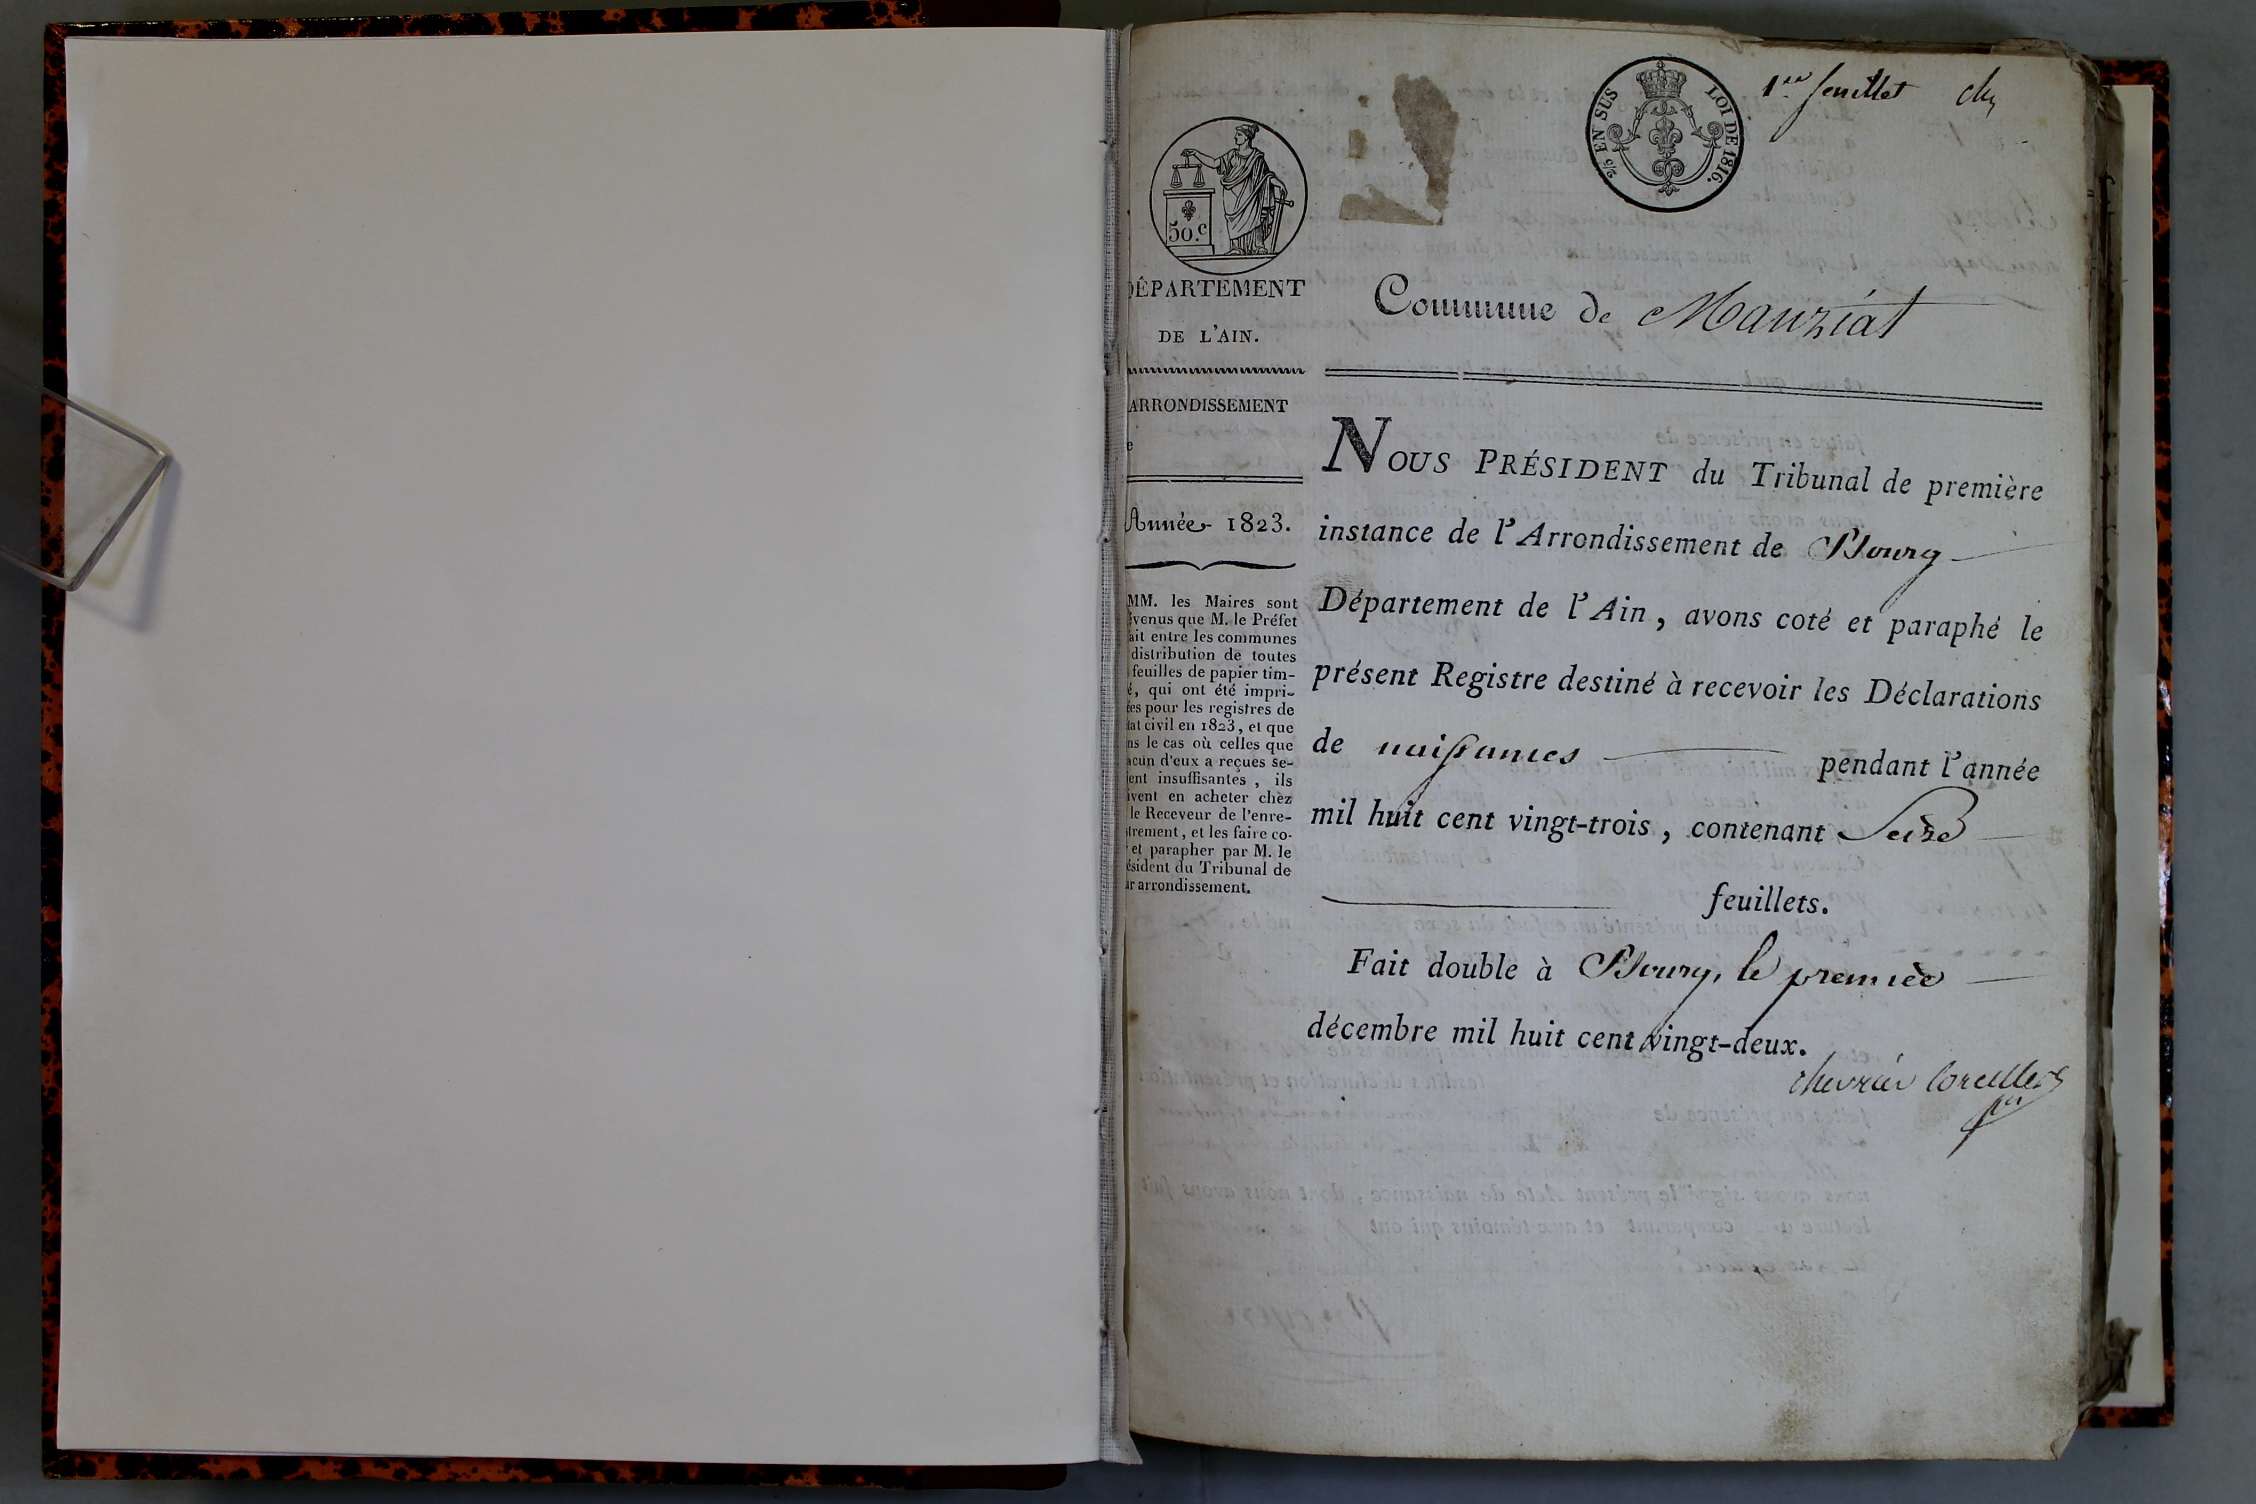 2/5 EN SUS LOI DE 1816.
1er feuillet
50.c
DÉPARTEMENT
DE L'AIN.
ARRONDISSEMENT
e
Année 1823.
MM. les Maires sont
évenus que M. le Préfet
ait entre les communes
distribution de toutes
feuilles de papier tim-
é, qui ont été impri-
ées pour les registres de
tat civil en 1823, et que
ns le cas où celles que
acun d'eux a reçues se-
ient insuffisantes, ils
ivent en acheter chez
le Receveur de l'enre-
strement, et les faire co-
r et parapher par M. le
ésident du Tribunal de
ur arrondissement.
Commune de Manziat
NOUS PRÉSIDENT du Tribunal de première
instance de l'Arrondissement de Bourg
Département de l'Ain, avons coté et paraphé le
présent Registre destiné à recevoir les Déclarations
de naissances pendant l'année
mil huit cent vingt-trois, contenant Seize
feuillets.
Fait double à Bourg, le premier
décembre mil huit cent vingt-deux.
chevrier Corcelles